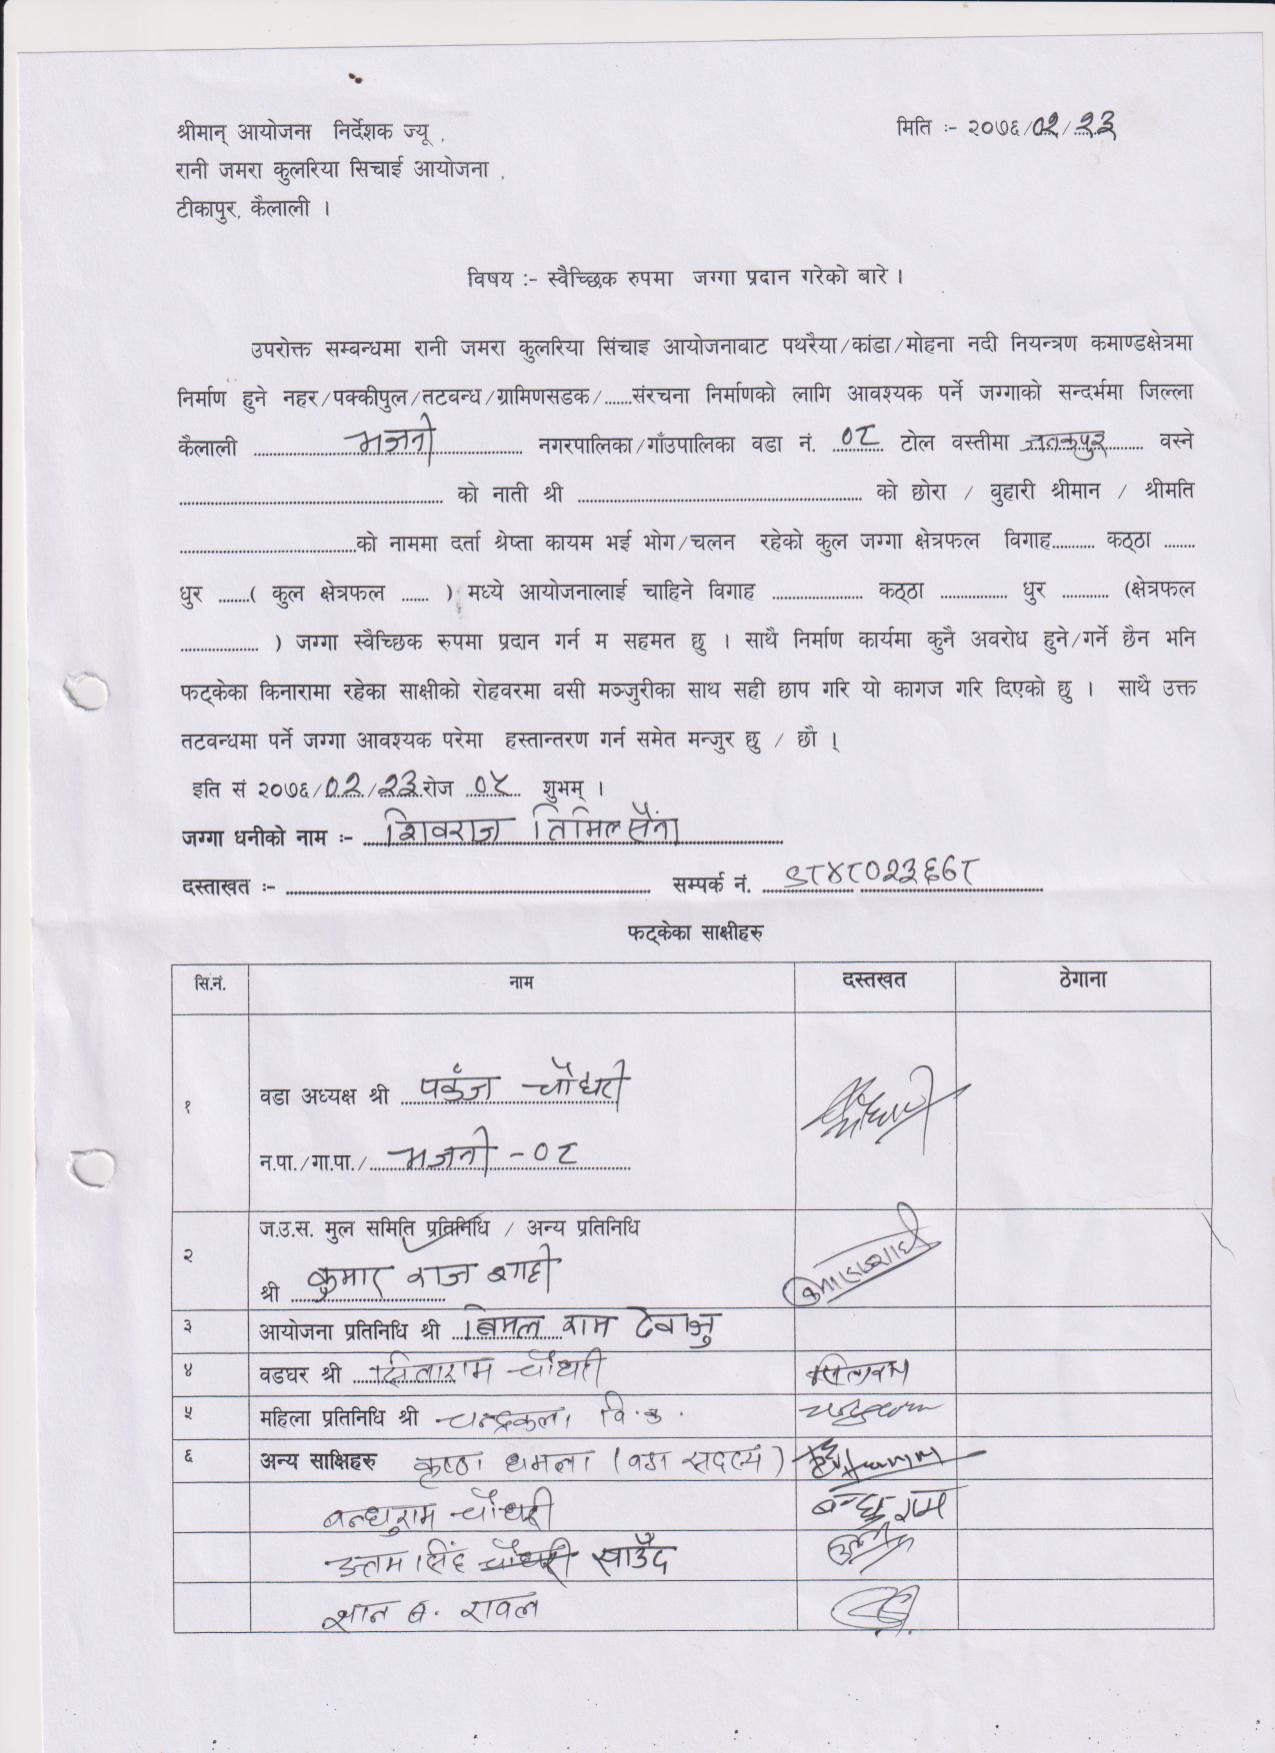 श्रीमान् आयोजना निर्देशक ज्यू .
मिति :- २०७६/०२/२३
रानी जमरा कुलरिया सिचाई आयोजना .
टीकापुर, कैलाली ।
विषय :- स्वैच्छिक रुपमा जग्गा प्रदान गरेको बारे ।
उपरोक्त सम्बन्धमा रानी जमरा कुलरिया सिंचाइ आयोजनाबाट पथरैया/कांडा/मोहना नदी नियन्त्रण कमाण्डक्षेत्रमा
निर्माण हुने नहर/पक्कीपुल/तटबन्ध/ग्रामिणसडक/.......संरचना निर्माणको लागि आवश्यक पर्ने जग्गाको सन्दर्भमा जिल्ला
कैलाली ........भजनी........ नगरपालिका/गाँउपालिका वडा नं. ०८ टोल वस्तीमा जनकपुर वस्ने
........ को नाती श्री ........ को छोरा / वुहारी श्रीमान / श्रीमति
........को नाममा दर्ता श्रेष्ता कायम भई भोग/चलन रहेको कुल जग्गा क्षेत्रफल विगाह........ कठ्ठा ........
धुर ........( कुल क्षेत्रफल ...... ) मध्ये आयोजनालाई चाहिने विगाह ........ कठ्ठा ........ धुर ........ (क्षेत्रफल
........ ) जग्गा स्वैच्छिक रुपमा प्रदान गर्न म सहमत छु । साथै निर्माण कार्यमा कुनै अवरोध हुने/गर्ने छैन भनि
फट्केका किनारामा रहेका साक्षीको रोहवरमा वसी मञ्जुरीका साथ सही छाप गरि यो कागज गरि दिएको छु । साथै उक्त
तटवन्धमा पर्ने जग्गा आवश्यक परेमा हस्तान्तरण गर्न समेत मन्जुर छु / छौ ।
इति सं २०७६/०२/२३ रोज ०५ शुभम् ।
जग्गा धनीको नाम :- शिवराज तिमिल्सैना
दस्ताखत :- ........ सम्पर्क नं. ९८४८०२३६७८
फट्केका साक्षीहरु
सि.नं. नाम दस्तखत ठेगाना
१ वडा अध्यक्ष श्री पकंज चौधरी
न.पा./गा.पा./ भजनी - ०८
२ ज.उ.स. मुल समिति प्रतिनिधि / अन्य प्रतिनिधि
श्री कुमार राज शाही
३ आयोजना प्रतिनिधि श्री बिमल राम
४ वडघर श्री सिताराम चौधरी सिताराम
५ महिला प्रतिनिधि श्री चन्द्रकला वि.क.
६ अन्य साक्षिहरु कृष्ण थमला (वडा सदस्य)
बन्धुराम चौधरी बन्धु राम
उत्तम सिंह चौधरी साउँद
शान ब. रावल